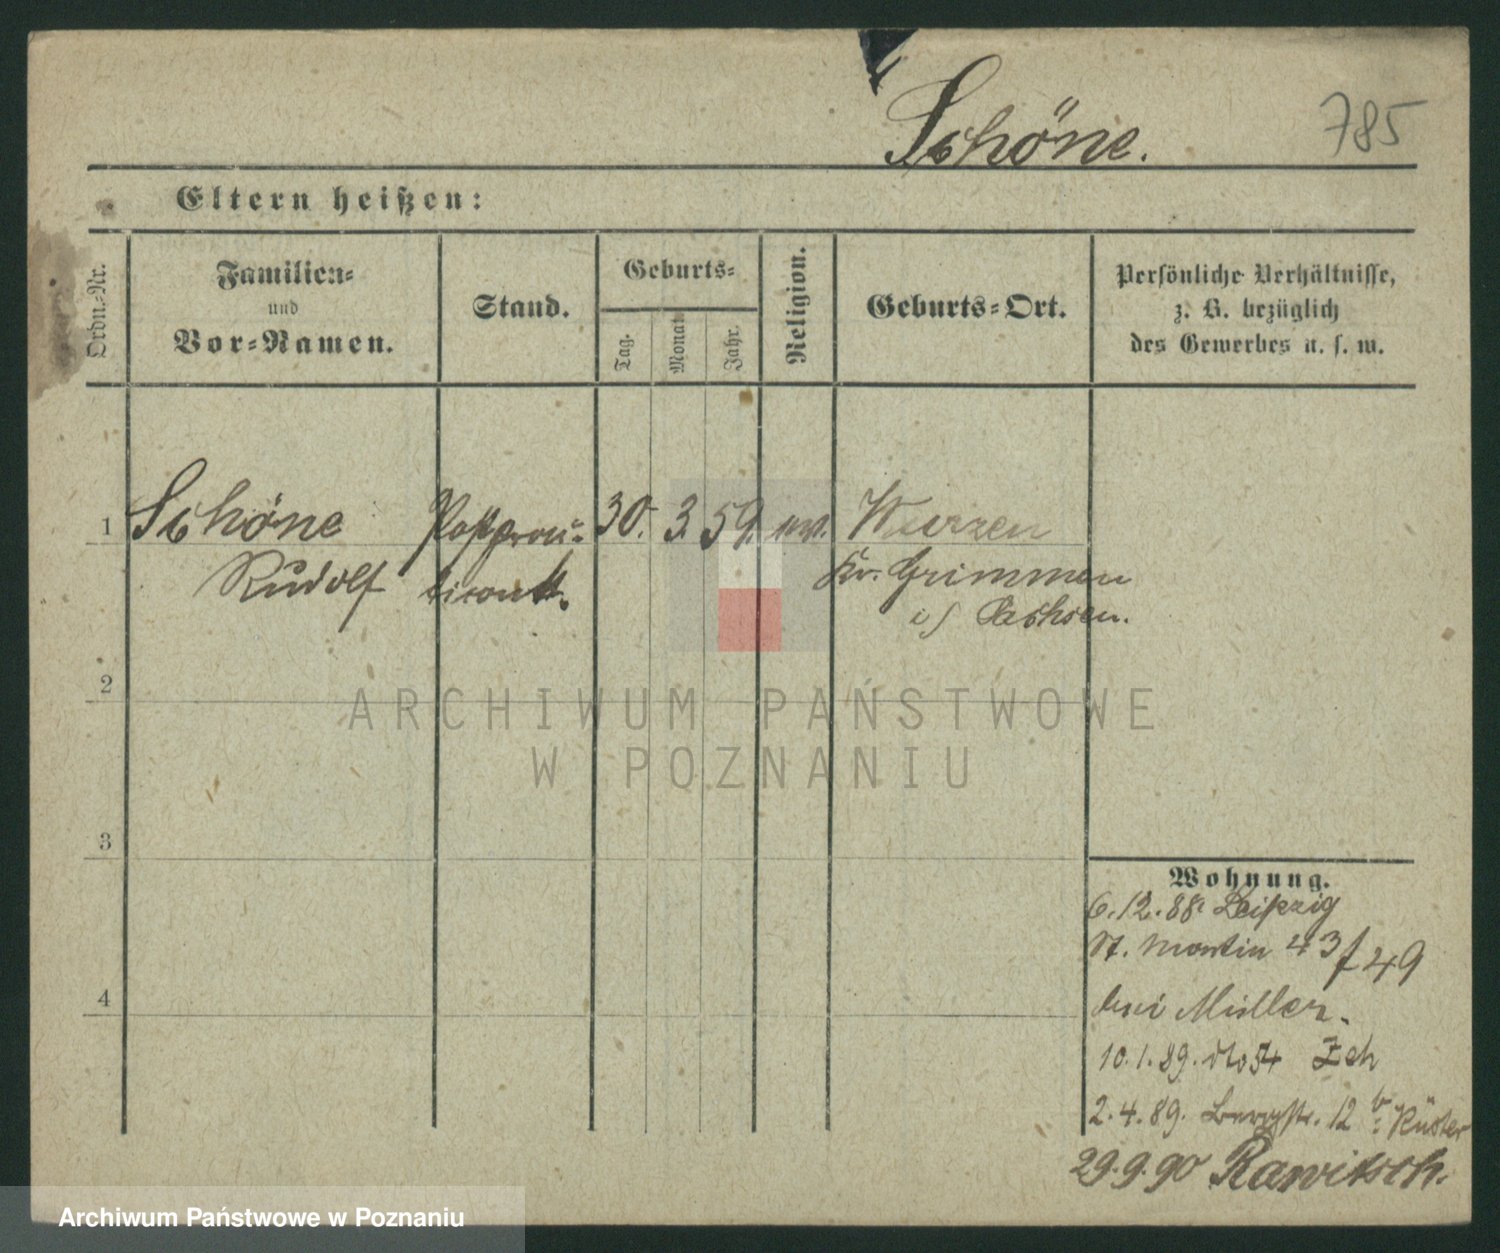 Schöne.
785
Eltern heißen:
Ordn.-Nr.
Familien-
und
Vor-Namen.
Stand.
Geburts-
Tag.
Monat
Jahr.
Religion.
Geburts-Ort.
Persönliche Verhältnisse,
z. B. bezüglich
des Gewerbes u. s. w.
1
Schöne
Rudolf
30. 3. 59.
Wurzen
Kr. Grimmen
i/ Sachsen.
2
3
4
ARCHIWUM PAŃSTWOWE
W POZNANIU
Wohnung.
6.12.88. Leipzig
St. Martin 43 f 49
bei Müller.
10.1.89. dto 54 Zeh
2.4.89. Bergstr. 12 b: Küster
29.9.90 Rawitsch.
Archiwum Państwowe w Poznaniu